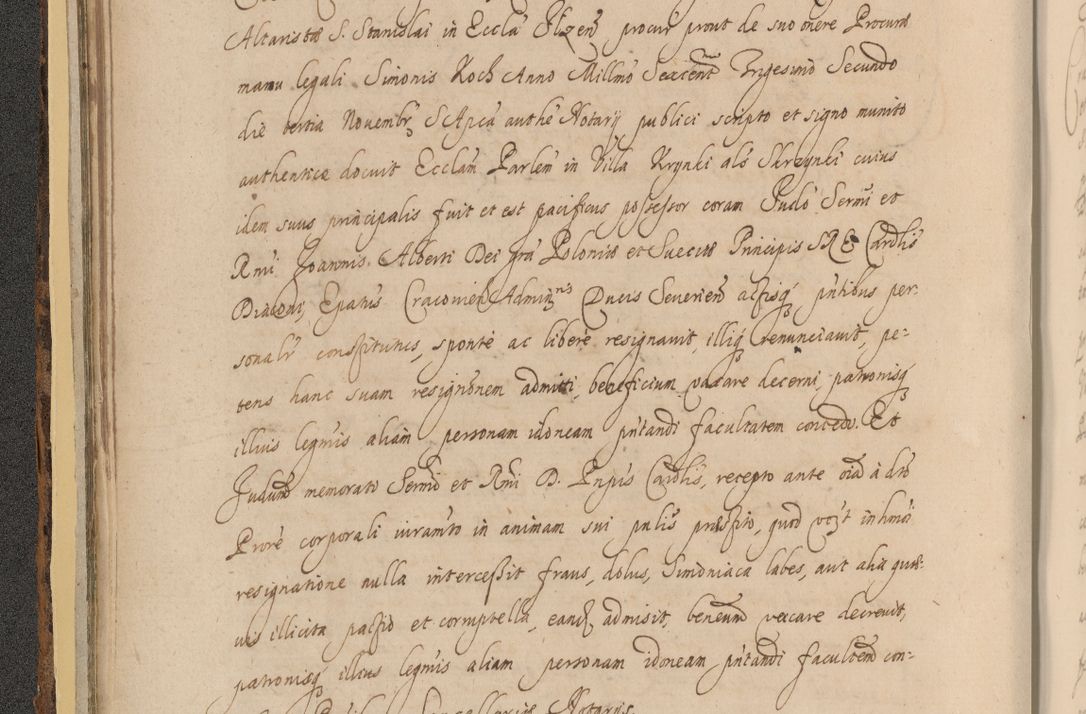 Altaristæ S. Stanislai in Eccla Ilzen procur prout de suo onere Procurae
manu legali Simonis Koch Anno Millmo Sexcent Trigesimo Secundo
die tertia Novembr S Apca authe Notarij publici scripto et signo munito
authentice docuit Ecclam Parlem in Villa Krynki als Skrzynki cuius
idem suus principalis fuit et est pacificus possessor coram Judo Sermi et
Rmi Joannis Alberti Dei gra Poloniæ et Sueciæ Principis SRE Cardlis
Diaconi, Epatus Cracovien Admin Ducis Severien actisq pntibus per-
sonalr constitutus, sponte ac libere resignavit, illiq renunciavit, pe-
tens hanc suam resignonem admitti, beneficium vacare decerni, patronisq
illius legmis aliam personam idoneam pntandi facultatem concedi. Et
Judum memorato Sermo et Rmi D. Pnpis Cardlis, recepto ante oia à dto
Prore corporali iuramto in animam sui pnlis præstito, quod in hmoi
resignatione nulla intercessit fraus, dolus, Simoniaca labes, aut alia quæ-
vis illicita pactio et corruptella, eand admisit, beneum vacare decrevit,
patronisq illius legmis aliam personam idoneam pntandi facultem con-
Notarijs